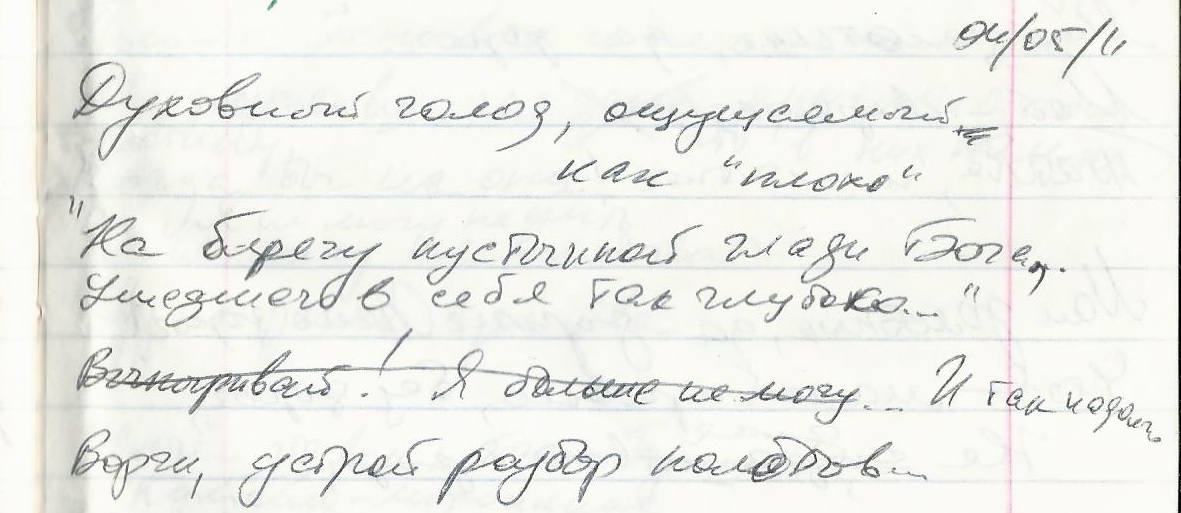 04/05/11
Духовный голод, ощущаемый
как "плохо"
"На берегу пустынной глади Бога,
Ушедшего в себя так глубоко..."
Выныривай! Я больше не могу... И так надолго
Ворчи, устрой разбор полётов...